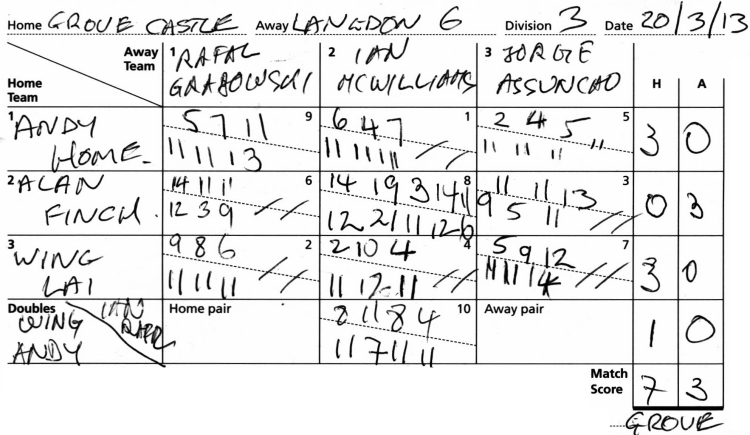 Home GROVE CASTLE Away LANGDON 6 Division 3 Date 20/3/13
Away Team
Home Team
1 RAFAL GRABOWSKI
2 IAN MCWILLIAMS
3 JORGE ASSUNCAO
H A
1 ANDY HOME
9
5 7 11
11 11 13
1
6 4 7
11 11 11
5
2 4 5
11 11 11
3 0
2 ALAN FINCH
6
14 11 11
12 3 9
8
14 19 3 14 11
12 21 11 12 6
3
11 11 13
9 5 11
0 3
3 WING LAI
2
9 8 6
11 11 11
4
2 10 4
11 12 11
7
5 9 12
11 11 14
3 0
Doubles
WING ANDY
IAN
Home pair
10
2 11 8 4
11 7 11 11
Away pair
1 0
Match Score 7 3
GROVE